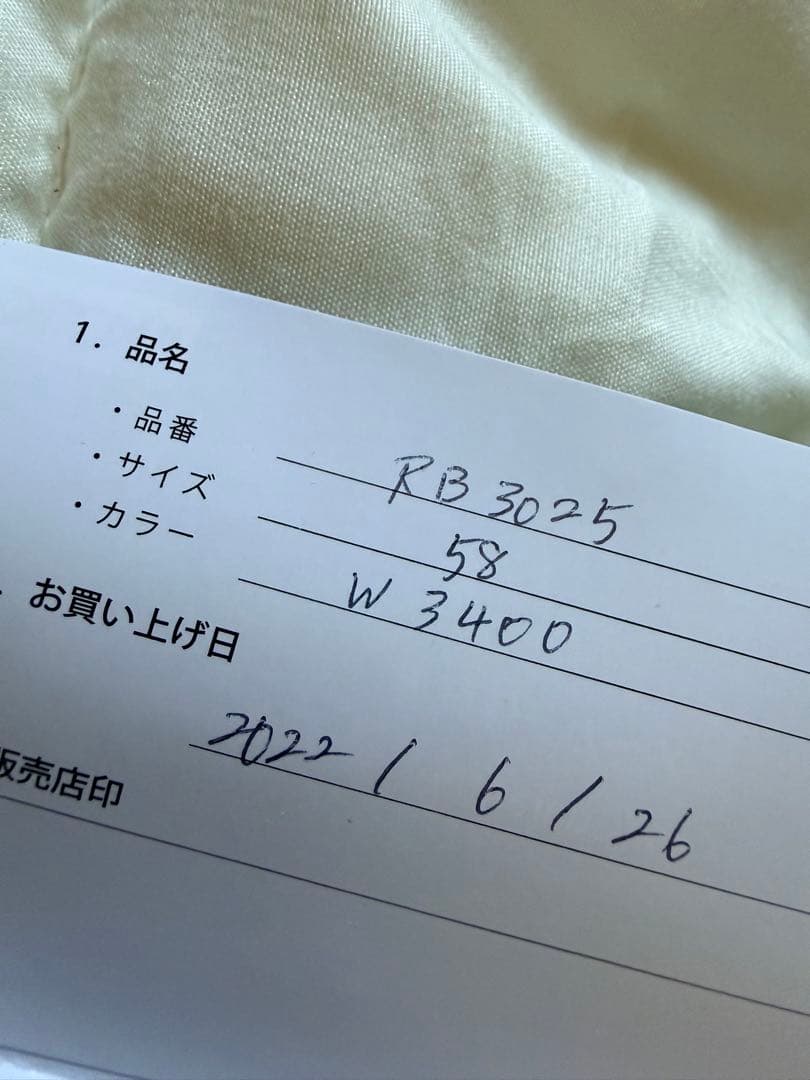 1. 品名
・品番 RB3025
・サイズ 58
・カラー W3400
お買い上げ日
2022 / 6 / 26
販売店印